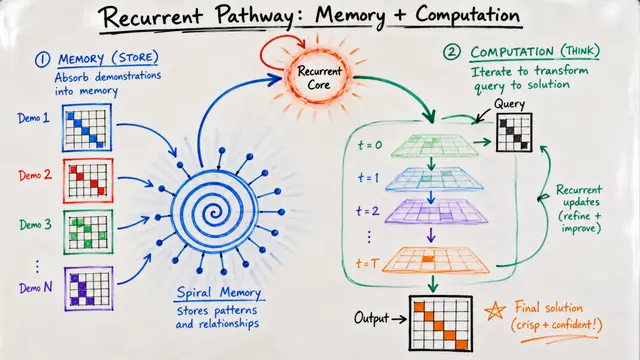 Recurrent Pathway: Memory + Computation
1 MEMORY (STORE)
Absorb demonstrations
into memory
Demo 1
Demo 2
Demo 3
⋮
Demo N
Spiral Memory
Stores patterns
and relationships
Recurrent
Core
2 COMPUTATION (THINK)
Iterate to transform
query to solution
Query
t = 0
t = 1
t = 2
⋮
t = T
Recurrent
updates
(refine +
improve)
Output
Final solution
(crisp + confident!)